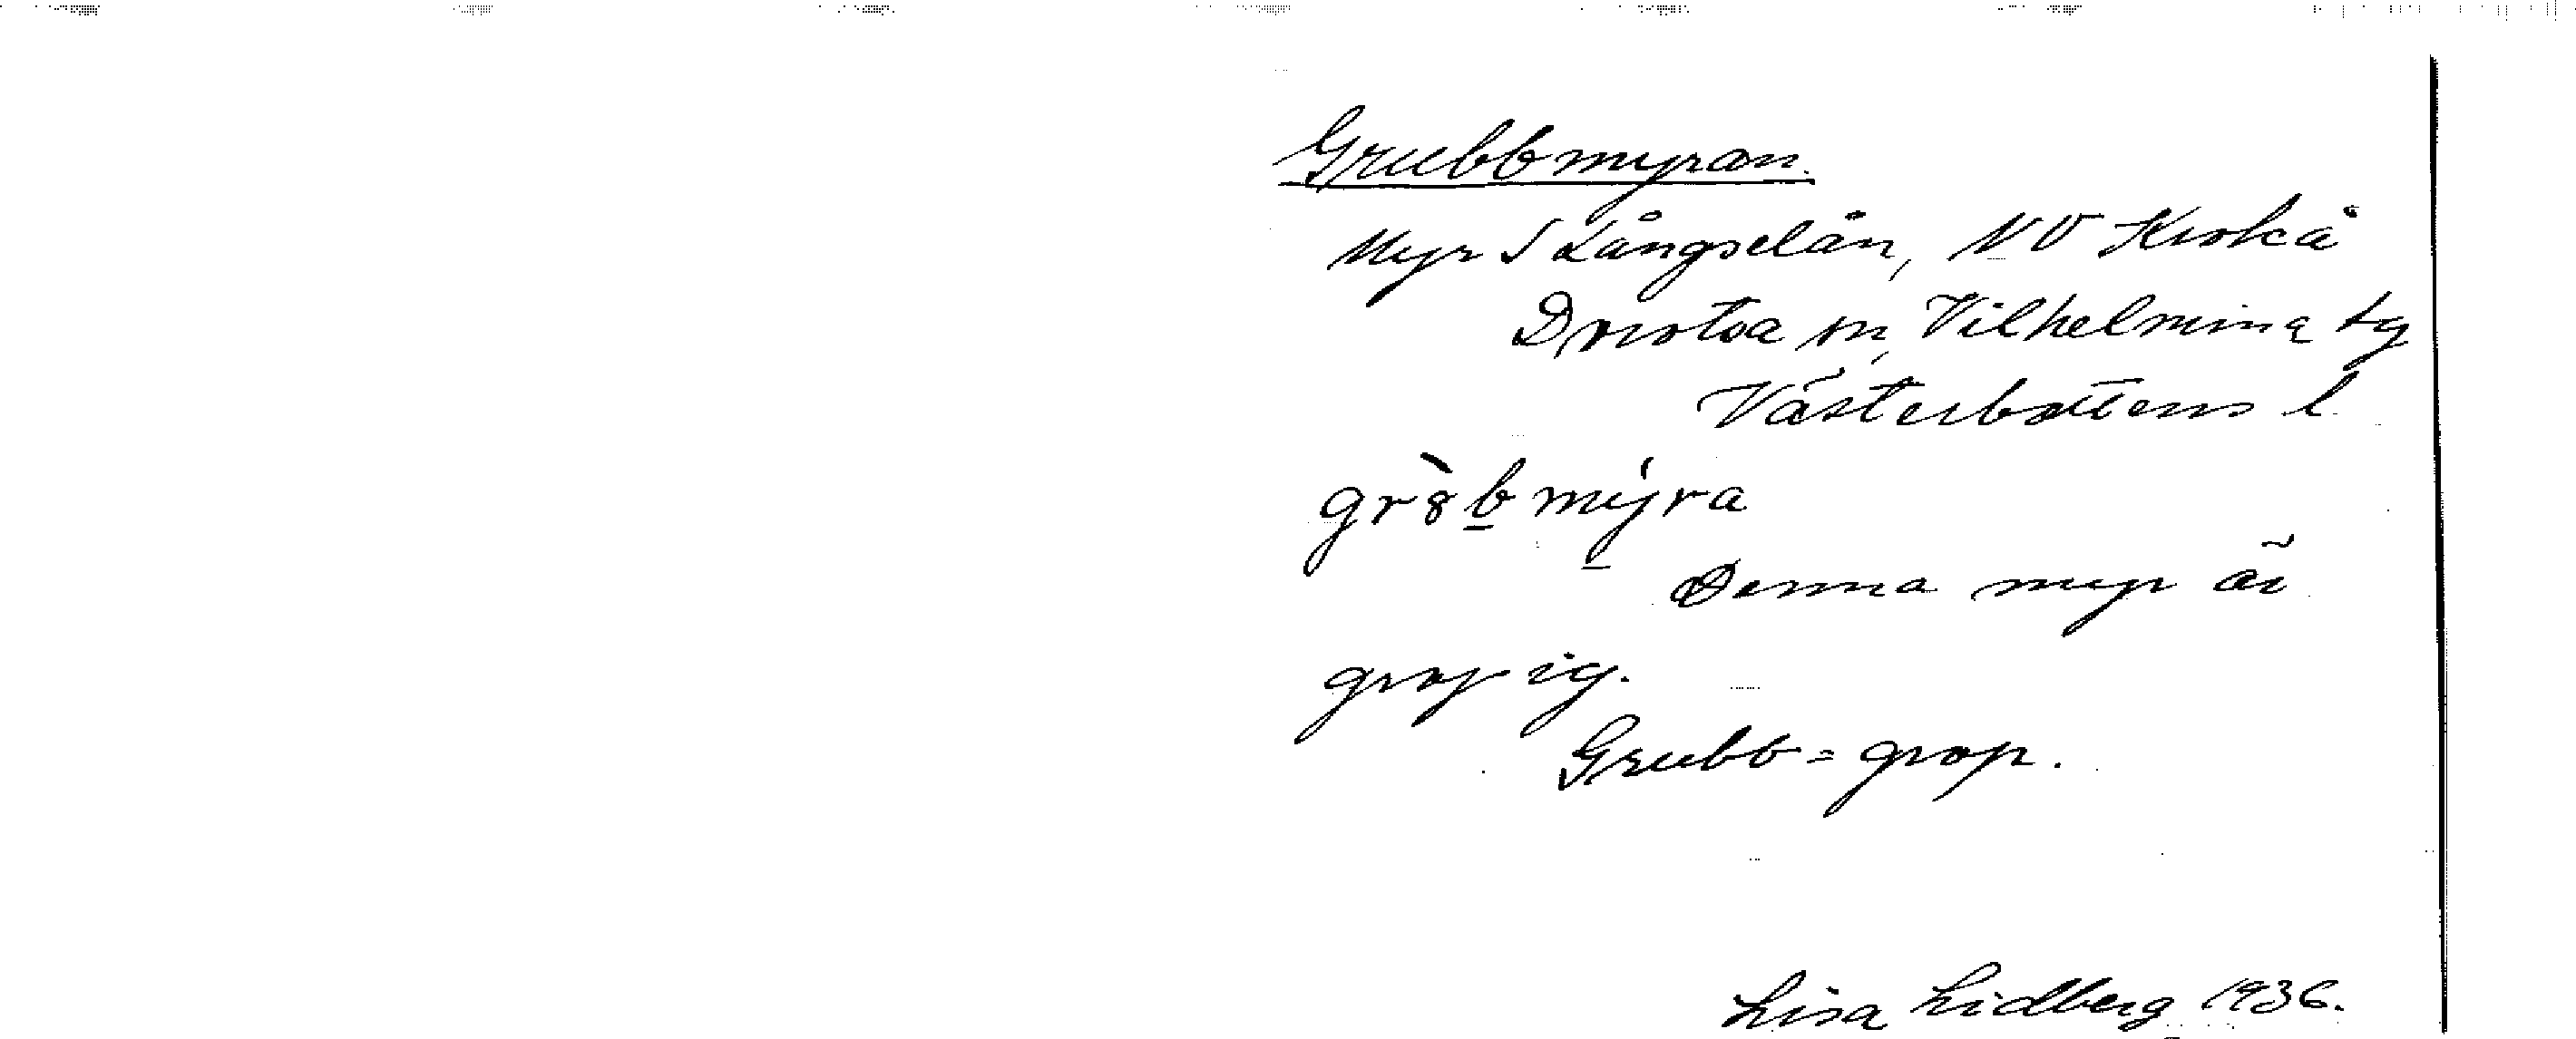 Grubbmyran.
Myr S Långselån, NV Krokå
Dorotea sn, Vilhelmina tg
Västerbottens l.
grȣ̀b mýra
Denna myr är
gropig.
Grubb = grop.
Lisa Lidberg 1936.